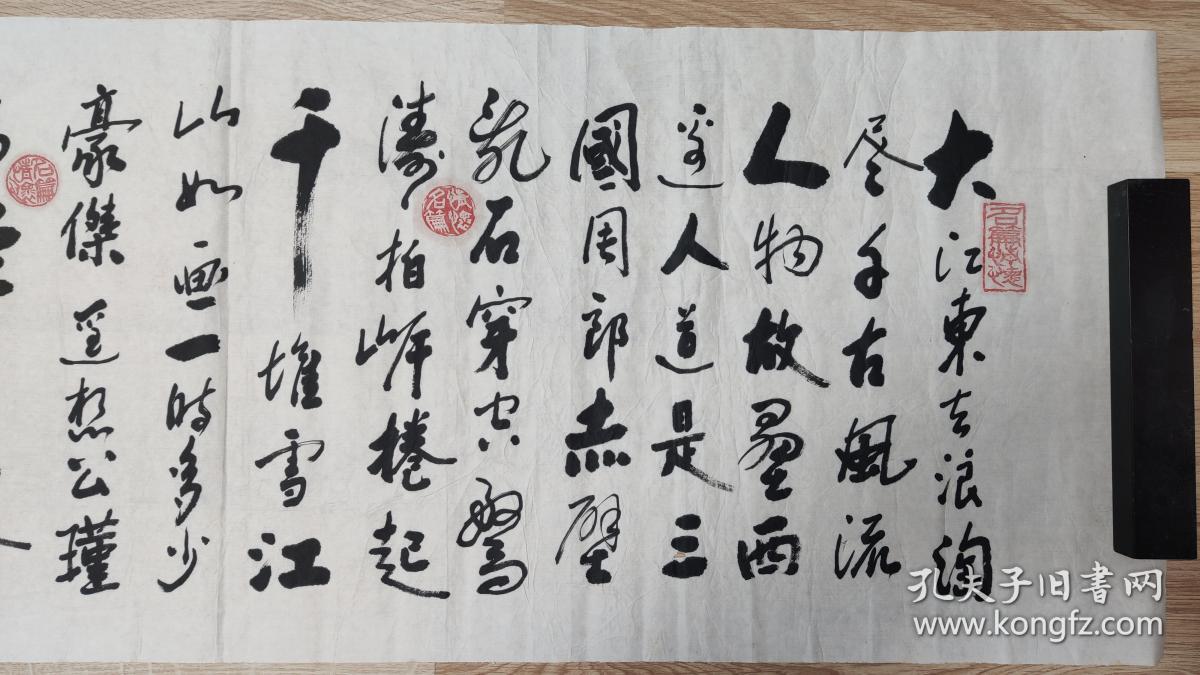 大江東去浪淘
尽千古風流
人物故壘西
邊人道是三
國周郎赤壁
亂石穿空驚
濤拍岸捲起
千堆雪江
山如画一時多少
豪傑遥想公瑾
名篇情懷
情懷名篇
孔夫子旧书网
www.kongfz.com